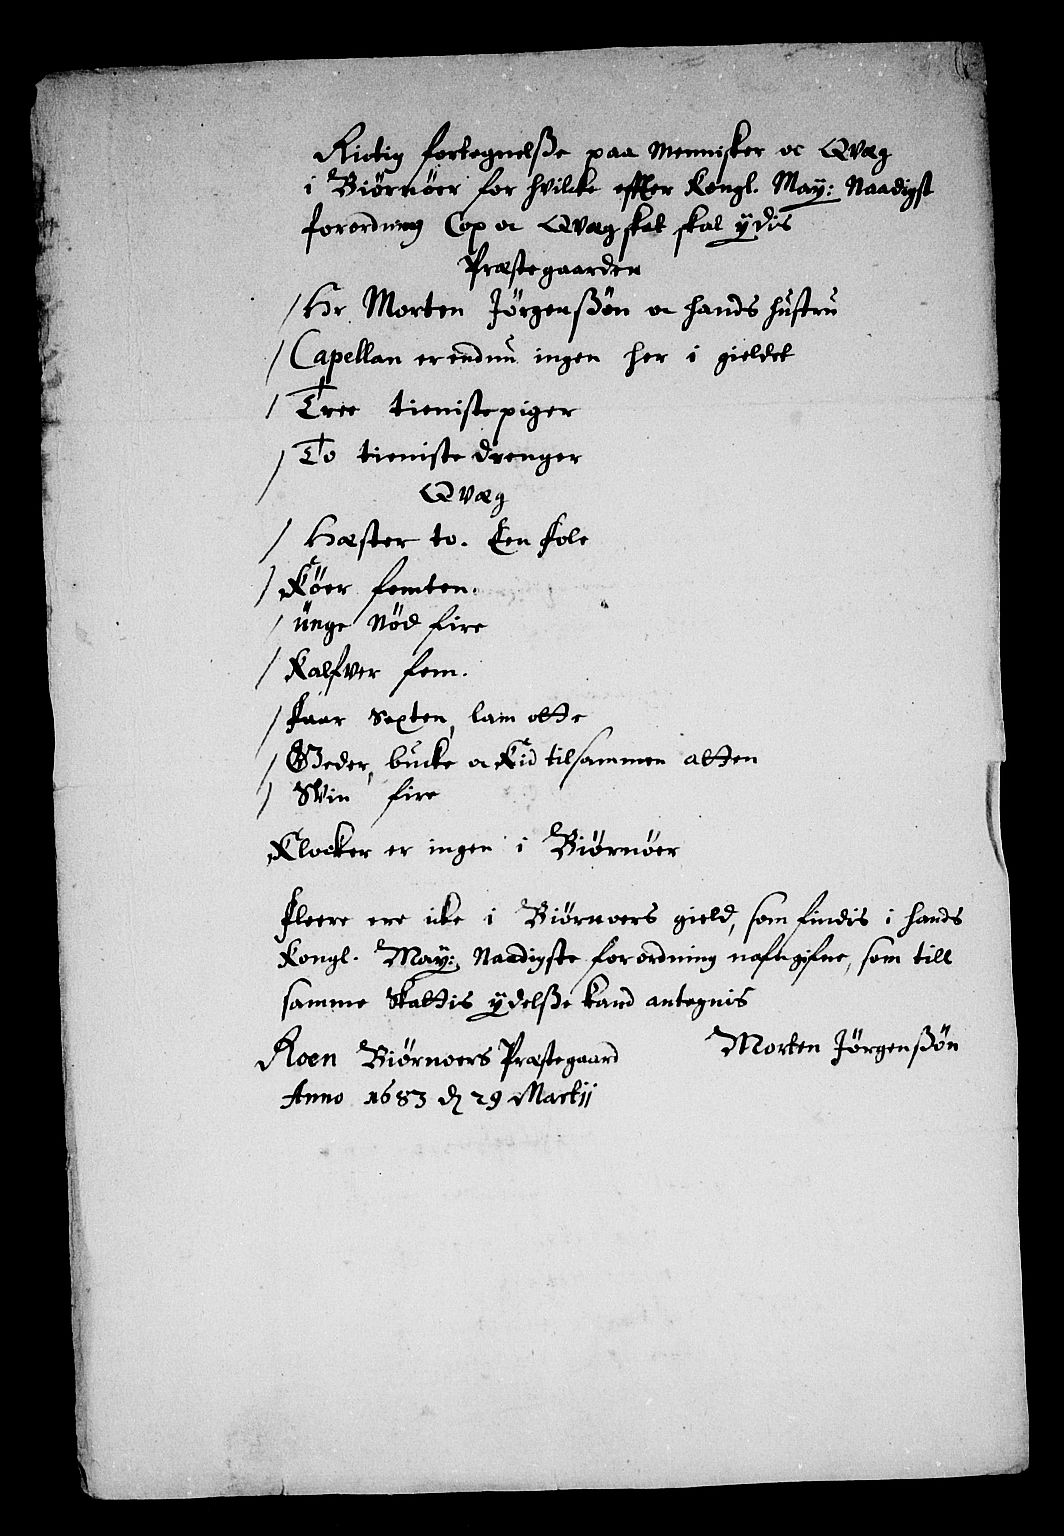 Rictig fortegnelsße paa Mennisker oc Qvæg
i Biørnøer for hvilcke effter Kongl. May: Naadigst
forordning Cop oc Qvægskat skal ÿdis
Præstegaarden
/ Hr. Morten Jörgensßön oc hands hustru
/ Capellan er endnu ingen her i gieldet
/ Tree tienistepiger
/ To tieniste drenger
Qvæg
/ Hæster to. Een fole
/ Köer femten.
/ unge Nöd fire
/ Kalfver fem.
/ Faar Sexten, lam otte
/ Geder, bucke oc Kid tilsammen atten
/ Svin fire
Klocker er ingen i Biørnöer
Fleere ere icke i Biørnoers gield, som findis i hands
Kongl. May: Naadigste forordning nafngifne, som till
samme Skattis ÿdelsße kand antegnis
Roen Biørnoers Præstegaard Morten Jörgensßön
Anno 1683 d 29 Martij